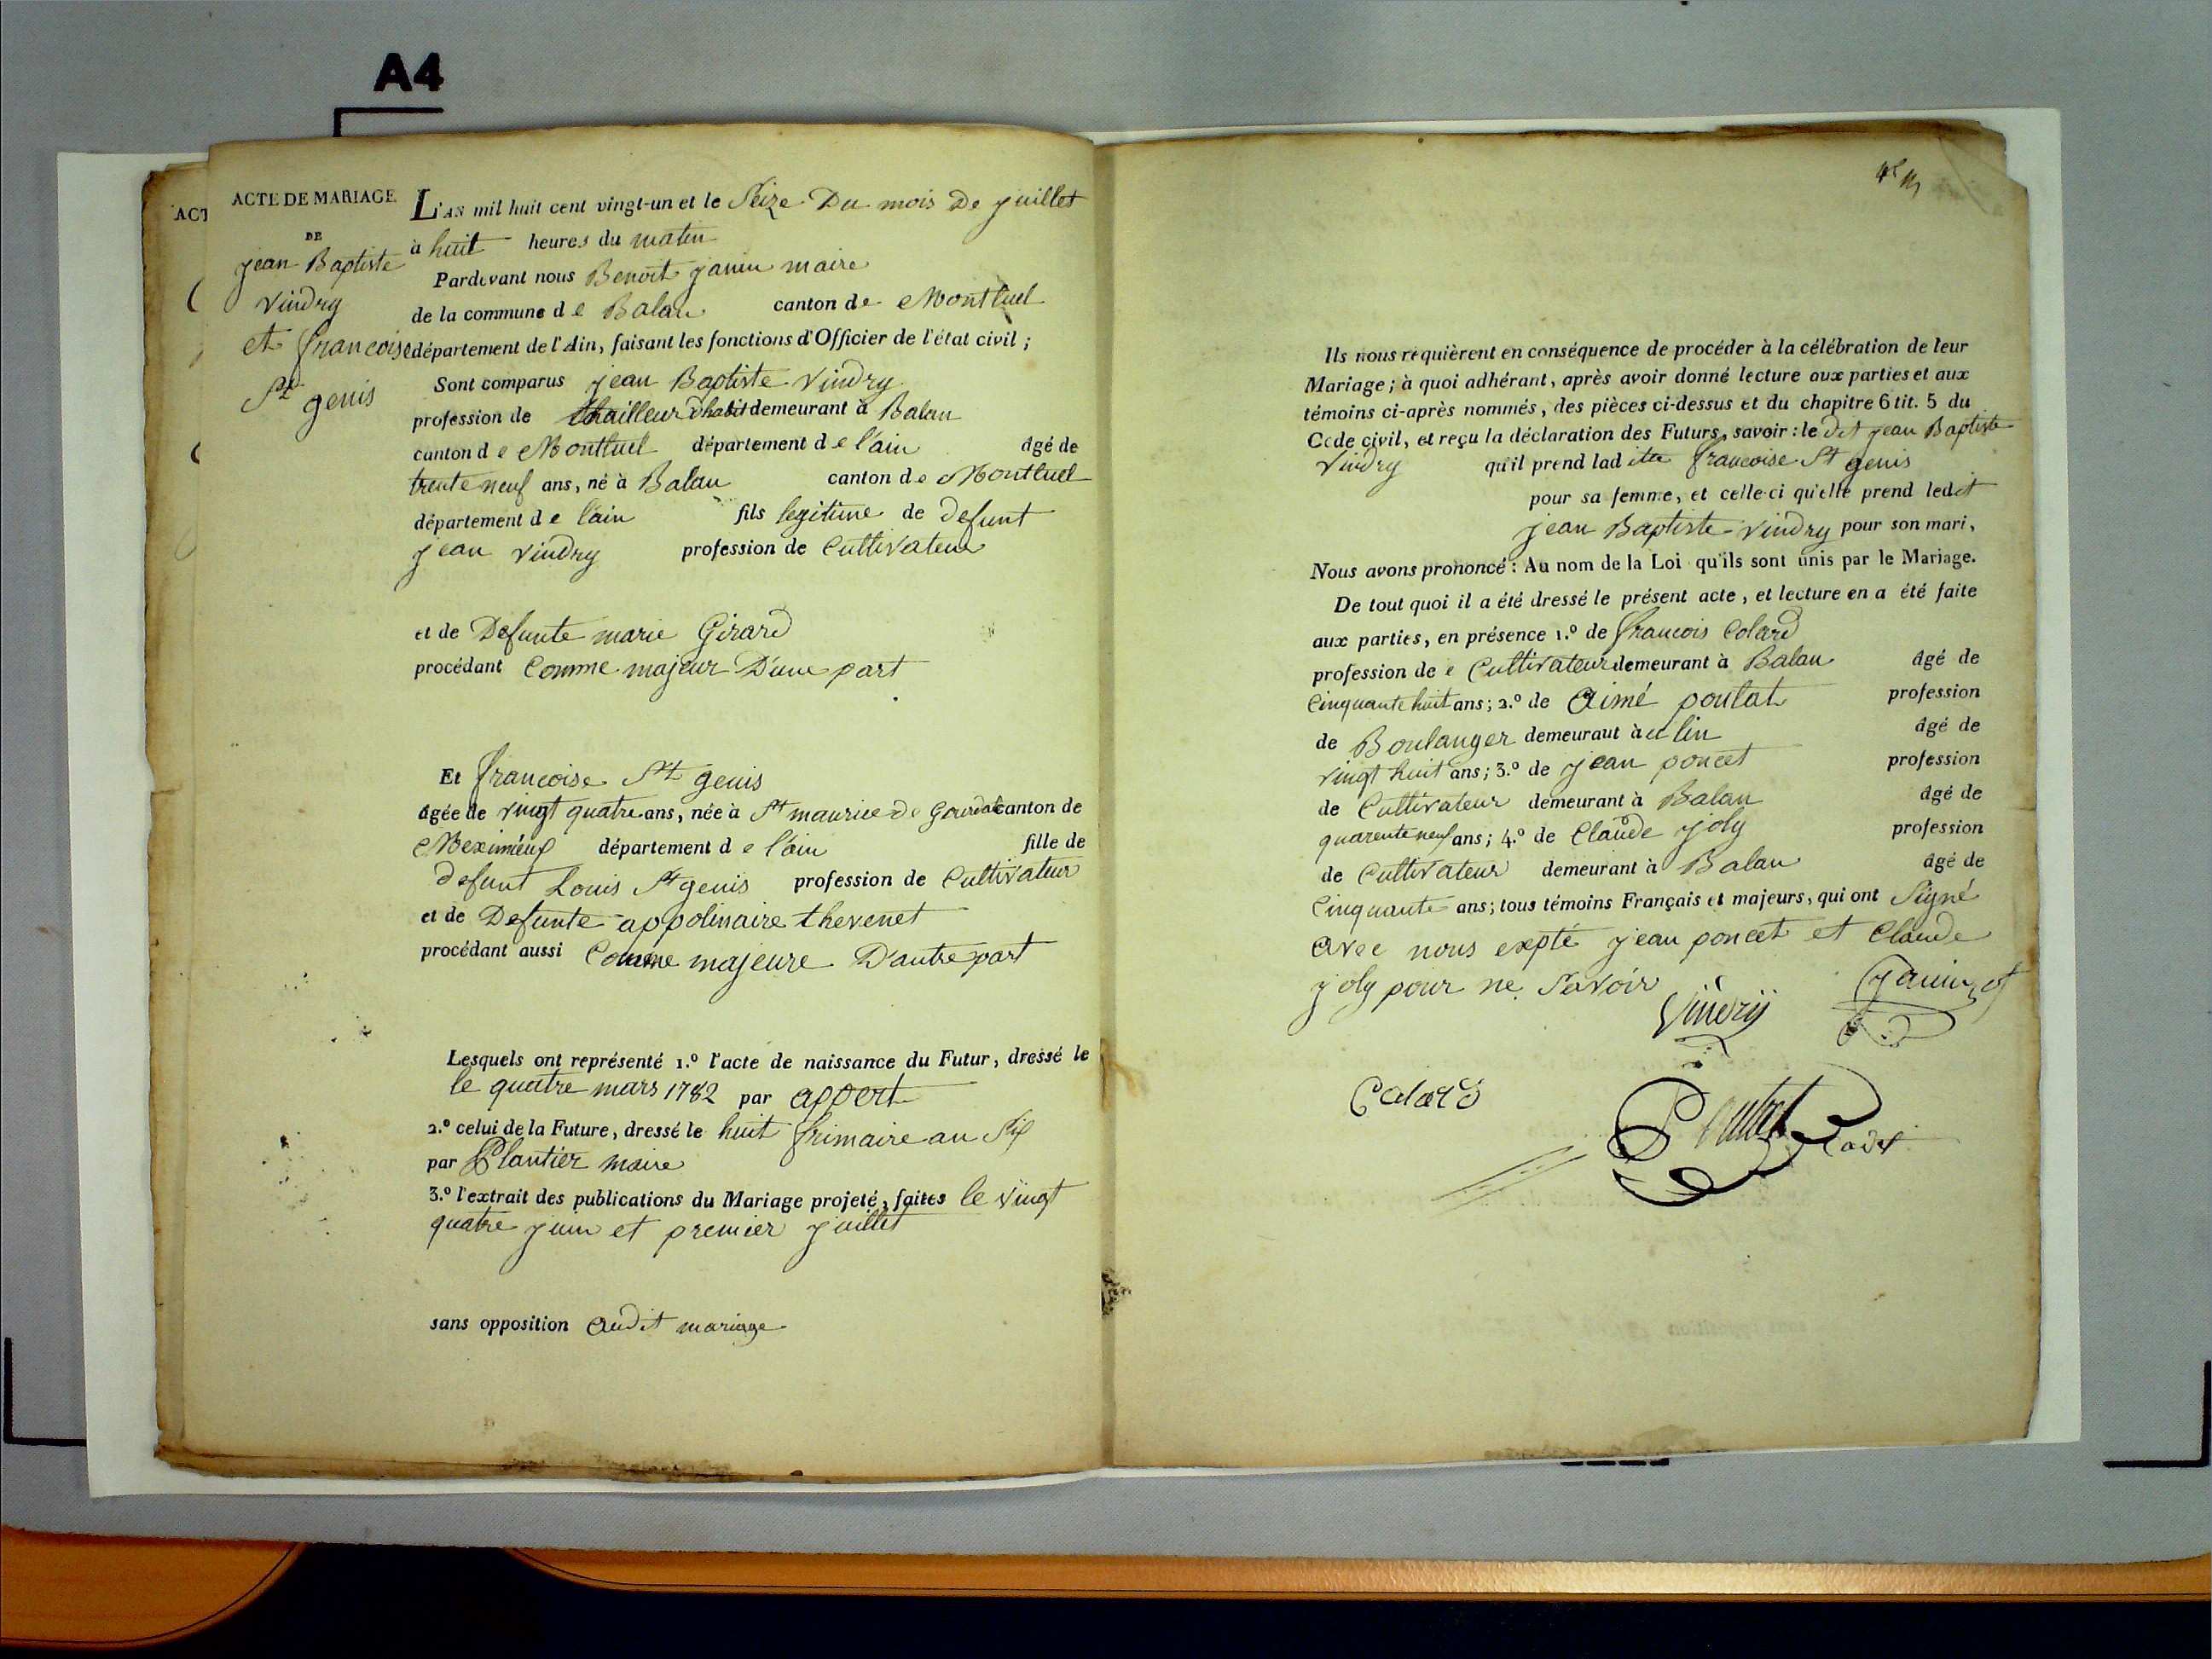 A4
ACT
ACTE DE MARIAGE
DE
jean Baptiste
vindry
et francoise
St genis
L'AN mil huit cent vingt-un et le Seize Du mois De juillet
à huit heures du matin
Pardevant nous Benoit janin maire
de la commune de Balan canton de Montluel
département de l'Ain, faisant les fonctions d'Officier de l'état civil ;
Sont comparus jean Baptiste vindry
profession de thailleur d'habit demeurant à Balan
canton de Montluel département de l'ain âgé de
trente neuf ans, né à Balan canton de Montluel
département de l'ain fils legitime de defunt
jean vindry profession de Cultivateur
et de Defunte marie Girard
procédant Comme majeur D'une part
Et francoise St genis
âgée de vingt quatre ans, née à St maurice de Gourdat canton de
Meximieux département de l'ain fille de
defunt Louis St genis profession de Cultivateur
et de Defunte appolinaire thevenet
procédant aussi Comme majeure D'autre part
Lesquels ont représenté 1.º l'acte de naissance du Futur, dressé le
le quatre mars 1782 par appert
2.º celui de la Future, dressé le huit frimaire an Six
par Plantier maire
3.º l'extrait des publications du Mariage projeté, faites le vingt
quatre juin et premier juillet
sans opposition audit mariage
Ils nous requièrent en conséquence de procéder à la célébration de leur
Mariage ; à quoi adhérant, après avoir donné lecture aux parties et aux
témoins ci-après nommés, des pièces ci-dessus et du chapitre 6 tit. 5 du
Code civil, et reçu la déclaration des Futurs, savoir : le dit jean Baptiste
vindry qu'il prend laditte francoise St genis
pour sa femme, et celle-ci qu'elle prend ledit
jean Baptiste vindry pour son mari,
Nous avons prononcé : Au nom de la Loi qu'ils sont unis par le Mariage.
De tout quoi il a été dressé le présent acte, et lecture en a été faite
aux parties, en présence 1.º de francois Colard
profession de Cultivateur demeurant à Balan âgé de
Cinquante huit ans ; 2.º de Aimé poulat profession
de Boulanger demeurant à âgé de
vingt huit ans ; 3.º de jean poncet profession
de Cultivateur demeurant à Balan âgé de
quarente neuf ans ; 4.º de Claude joly profession
de Cultivateur demeurant à Balan âgé de
Cinquante ans ; tous témoins Français et majeurs, qui ont Signé
avec nous expté jean poncet et Claude
joly pour ne Savoir
Vindry janin
Colard